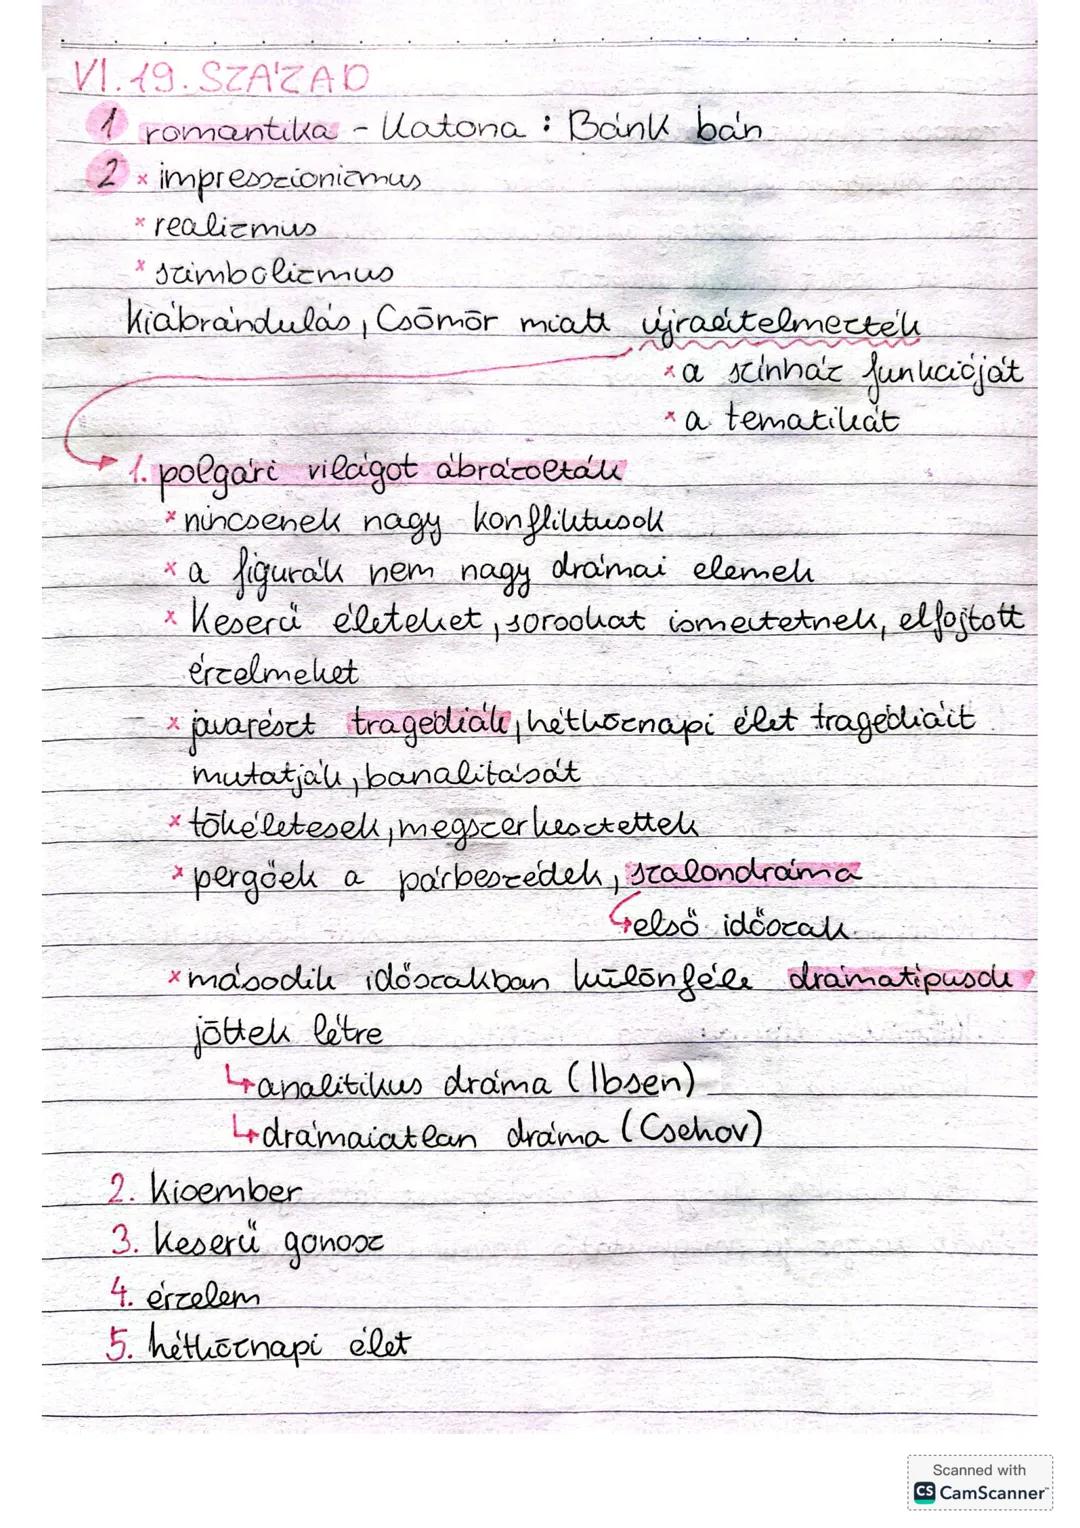 VI. 19. SZÁZAD
1 romantika - Katona : Bánk bán
2 x impresszionizmus
x realizmus
x szimbolizmus
Kiábrándulás, Csömör miatt újraértelmezték
x a színház funkcióját
x a tematikát
1. polgári világot ábrázolták
x nincsenek nagy konfliktusok
x a figurák nem nagy drámai elemek
x Keserű életeket, sorsokat ismertetnek, elfojtott
érzelmeket
x javarészt tragédiák, hétköznapi élet tragédiáit
mutatják, banalitását
x tökéletesek, megszerkesztettek
x pergőek a párbeszédek, szalondráma
↳ első időszak
x második időszakban különféle drámatípusok
jöttek létre
↳ analitikus dráma (Ibsen)
↳ drámaiatlan dráma (Csehov)
2. Kisember
3. Keserű gonosz
4. érzelem
5. hétköznapi élet
Scanned with
CS CamScanner™